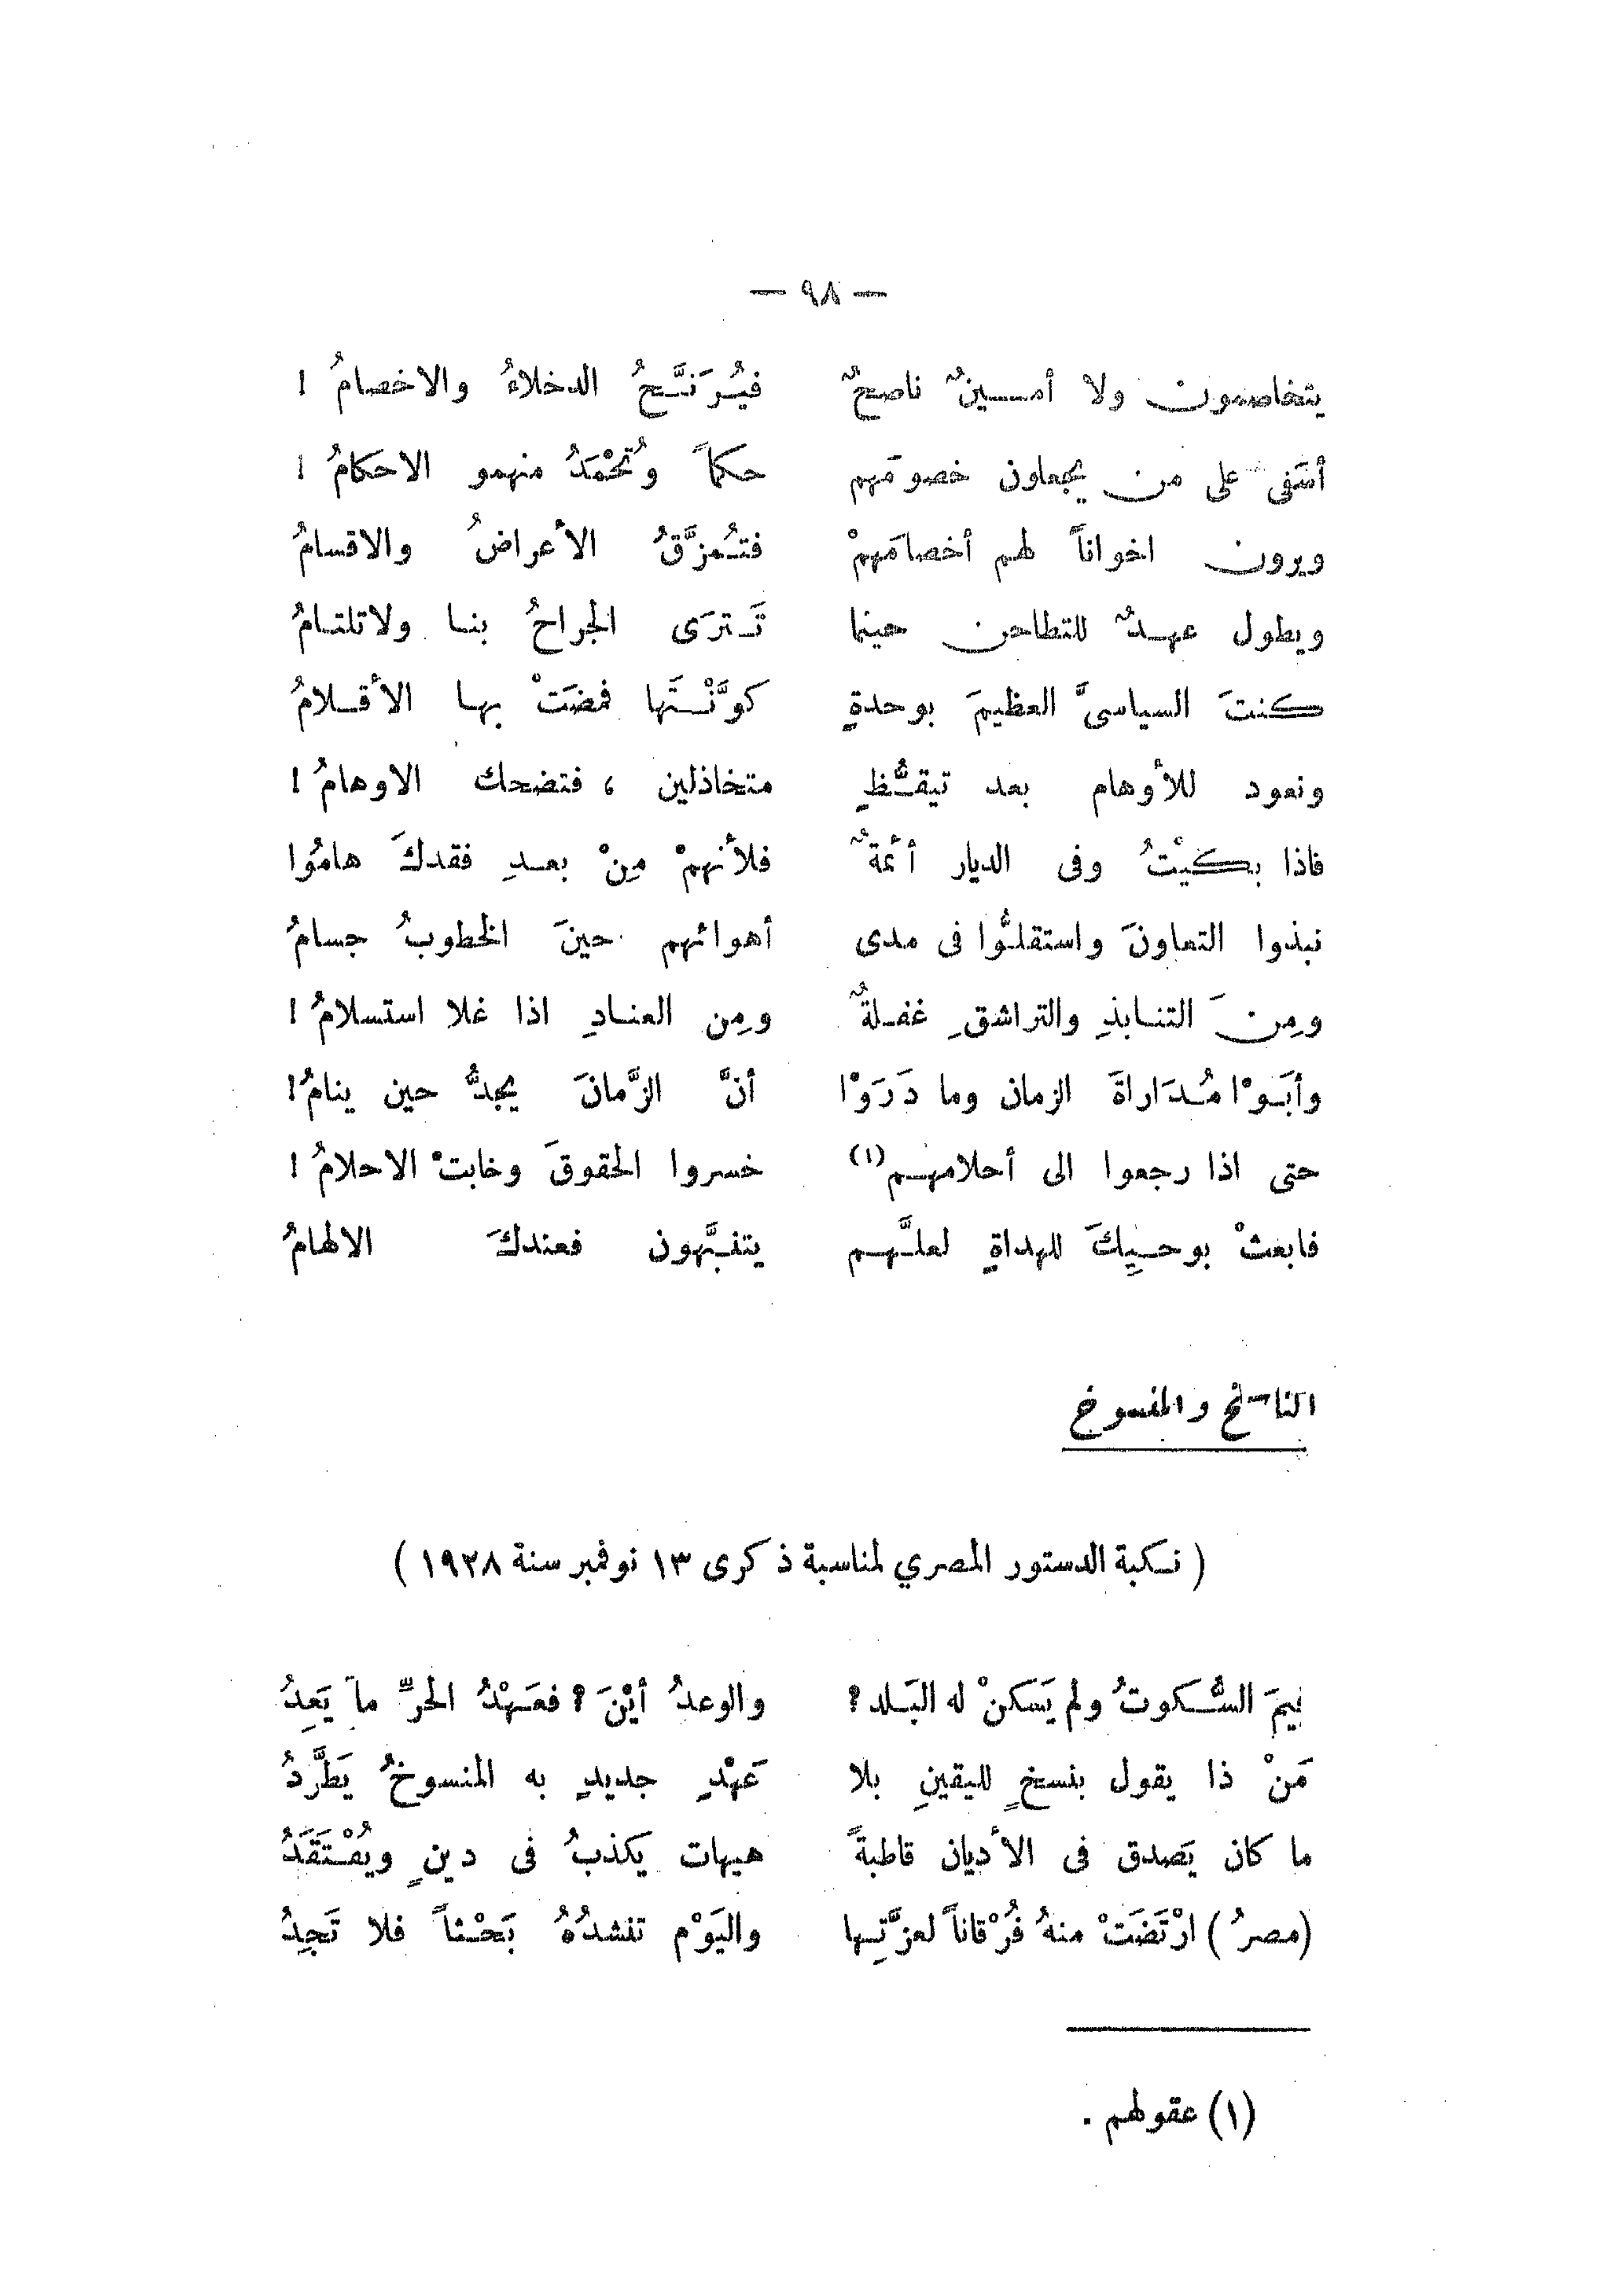 — ٩٨ —
يتخاصمون ولا أمــينٌ ناصحٌ فيُرَنَّحُ الدخلاءُ والاخصامُ !
أسَفى على من يجعلون خصومَهم حكماً وتُحْمَدُ منهمو الاحكامُ !
ويرون اخواناً لهم أخصامَهمْ فتُمزَّقُ الأعراضُ والاقسامُ
ويطول عهدٌ للتطاحن حينما تَترَى الجراحُ بنا ولا تلتامُ
كنتَ السياسىَّ العظيمَ بوحدةٍ كوَّنْتَها فمضَتْ بها الأقلامُ
ونعود للأوهام بعد تيقُّظٍ متخاذلين ، فتضحك الاوهامُ !
فاذا بكيْتُ وفى الديار أئمةٌ فلأنهمْ مِنْ بعدِ فقدكَ هامُوا
نبذوا التعاونَ واستقلُّوا فى مدى أهوائهم حينَ الخطوبُ جسامُ
ومِنَ التنابذِ والتراشقِ غفلةٌ ومِن العنادِ اذا غلا استسلامُ !
وأبَوْا مُدَاراةَ الزمان وما دَرَوْا أنَّ الزَّمانَ يجدُّ حين ينامُ !
حتى اذا رجعوا الى أحلامهم (١) خسروا الحقوقَ وخابتْ الاحلامُ !
فابعثْ بوحيِكَ للهداةِ لعلَّهم يتنبَّهون فعندكَ الالهامُ
الناسخ والمنسوخ
( نكبة الدستور المصري لمناسبة ذكرى ١٣ نوفمبر سنة ١٩٢٨ )
فيمَ السُّكوتُ ولم يَسكنْ له البَلد ؟ والوعدُ أيْنَ ؟ فعَهْدُ الحرِّ ما يَعِدُ
مَنْ ذا يقول بنسخٍ لليقينِ بلا عَهْدٍ جديدٍ به المنسوخُ يَطَّرِدُ
ما كان يَصدق فى الأديان قاطبةً هيهات يَكذبُ فى دينٍ ويُفْتَقَدُ
(مصرُ) ارْتَضَتْ منهُ فُرْقاناً لعزَّتِها واليَوْم تنشدُهُ بَحْثاً فلا تَجِدُ
(١) عقولهم .